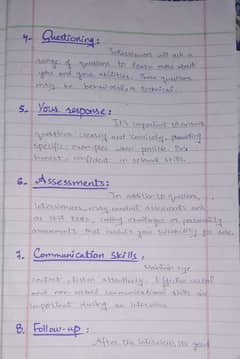 4. Questioning :
Interviewers will ask a
range of questions to learn more about
you and your abilities. These questions
may be behavioral, technical
5. Your response :
It's important to answer
questions clearly and concisely, providing
specific examples when possible. Be
honest, confident in
6. Assessments :
In addition to questions,
interviewers may conduct assessments such
as skill tests, coding challenges or personality
assessments that your suitability for role.
7. Communication skills :
Maintain eye
contact, listen attentively. Effective verbal
and non-verbal communication skills are
important during an interview.
8. Follow-up :
After the interview, its good